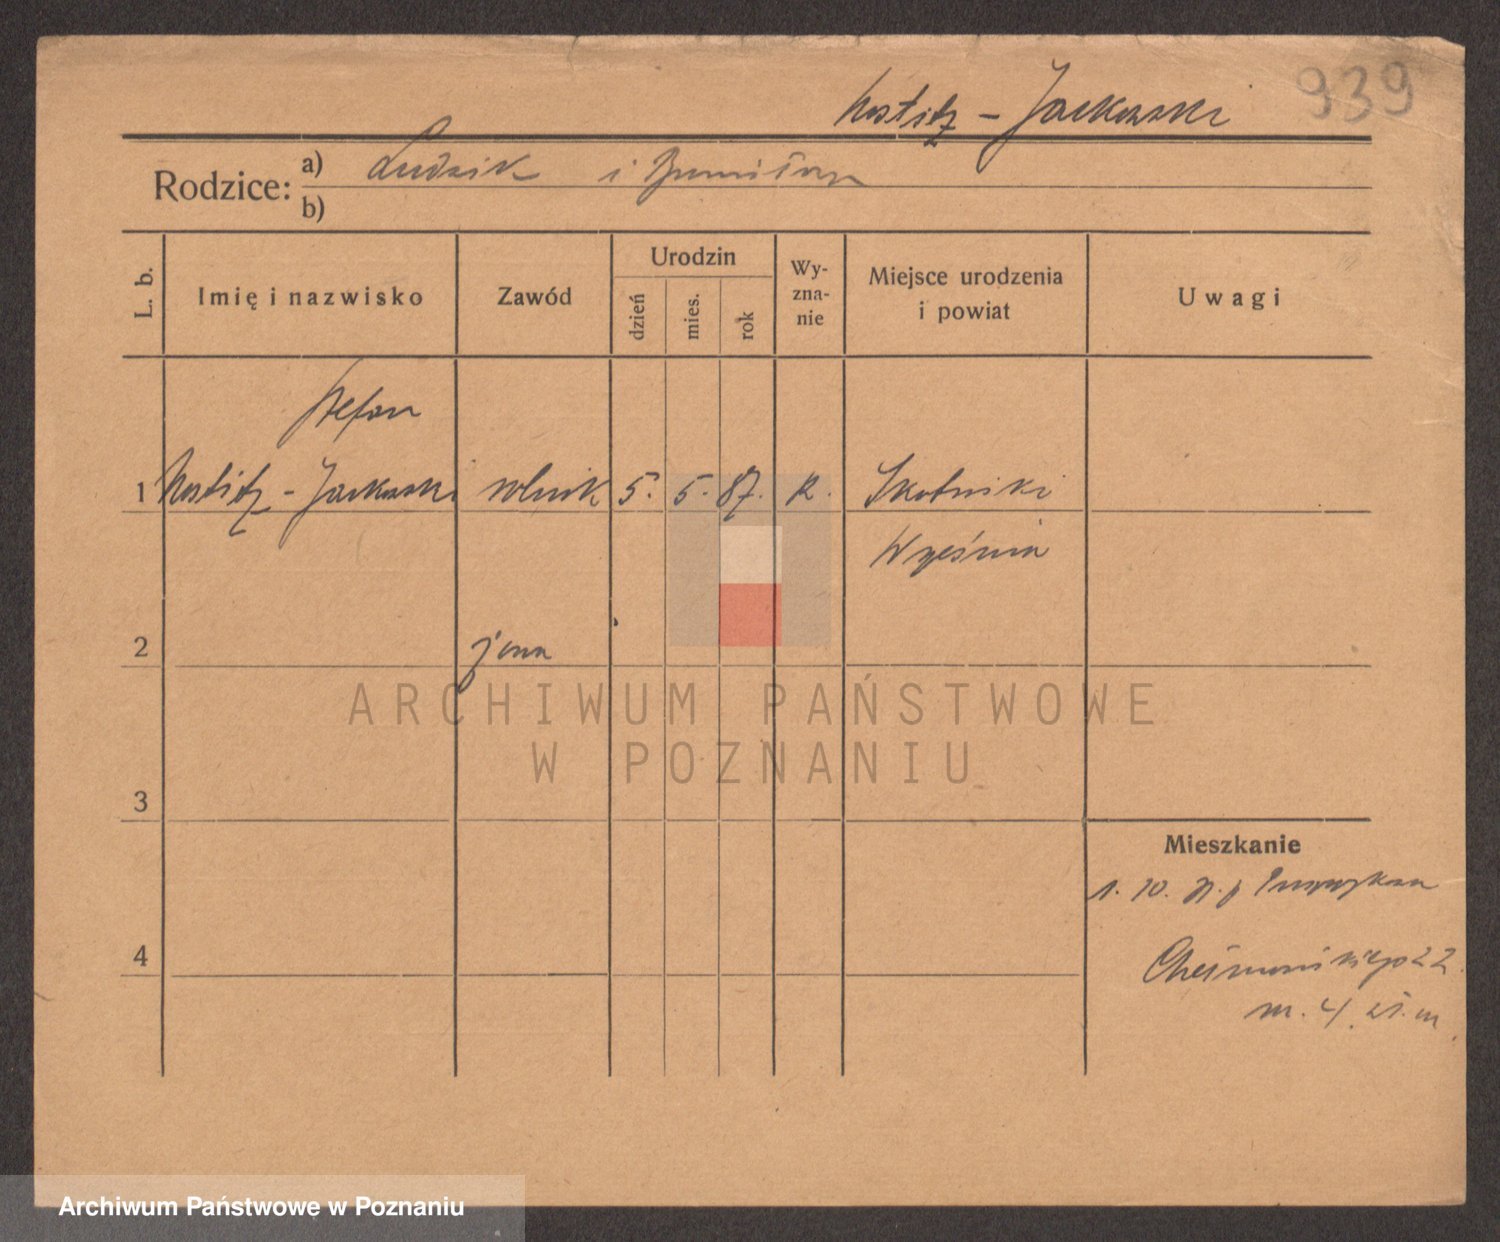 939
Nostitz - Jackowski
Rodzice: a) Ludwik i
b)
L. b.
Imię i nazwisko
Zawód
Urodzin
dzień
mies.
rok
Wy-
zna-
nie
Miejsce urodzenia
i powiat
Uwagi
Stefan
1 Nostitz - Jackowski rolnik 5. 5. 87. R. Skotniki
Września
2 żona
3
4
Mieszkanie
1. 10.
22
m. 4
ARCHIWUM PAŃSTWOWE
W POZNANIU
Archiwum Państwowe w Poznaniu